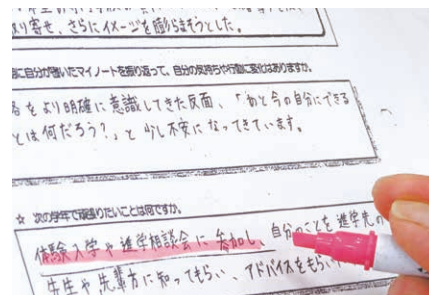 より寄せ、さらにイメージを膨らまそうとした。
に自分が書いたマイノートを振り返って、自分の気持ちや行動に変化はありますか。
るをより明確に意識してきた反面、「わと今の自分にできる
とは何だろう?」と少し不安になってきています。
☆ 次の学年で頑張りたいことは何ですか。
体験入学や進学相談会に参加し、自分のことを進学先の
先生や先輩方に知ってもらい、アドバイスをもらい